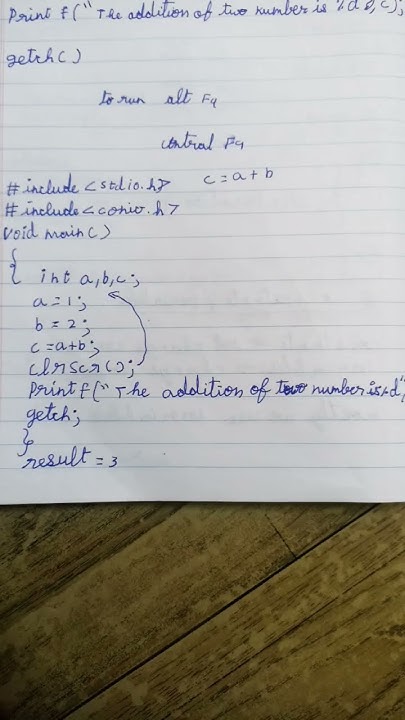 Print f("The addition of two number is %d &,c);
getch()
to run alt F9
control F9
c = a + b
# include <stdio.h>
# include <conio.h>
void main()
{
{ int a,b,c;
a = 1;
b = 2;
c = a+b;
clrscr();
Print f("The addition of two number is %d",
getch;
}
result = 3